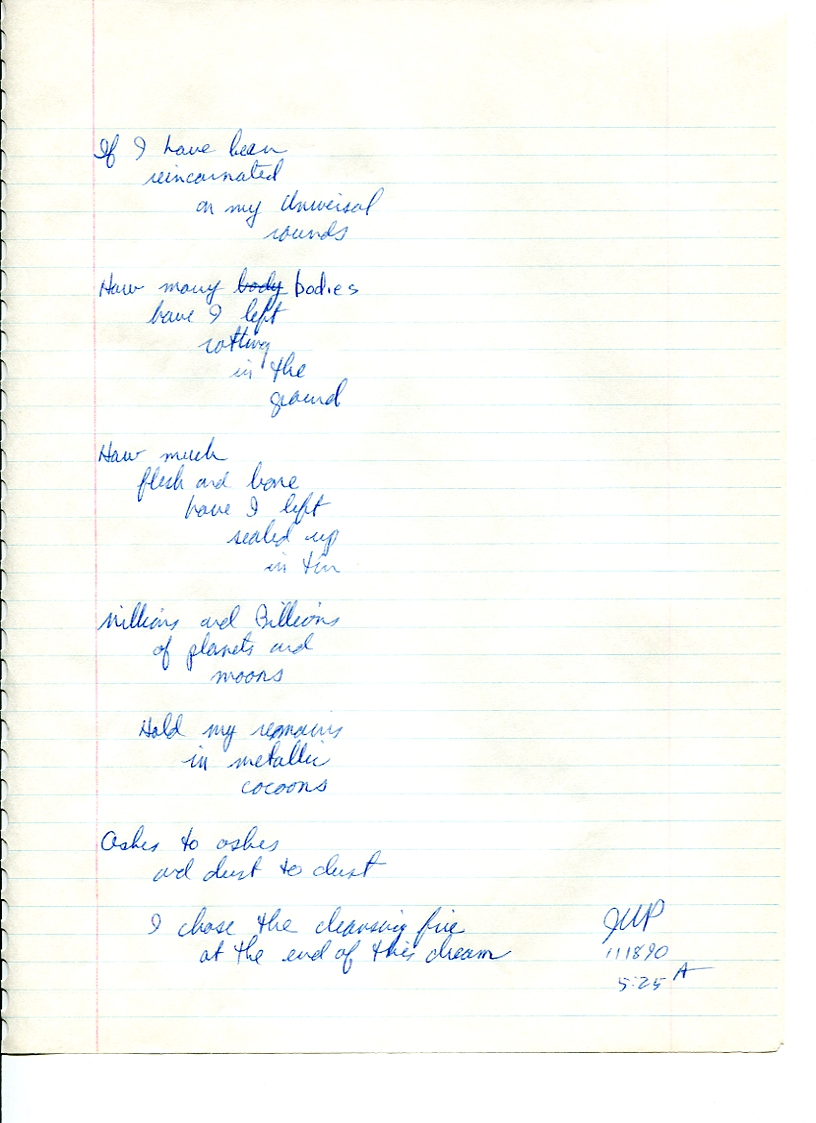 If I have been
reincarnated
on my Universal
rounds
How many body bodies
have I left
rotting
in the
ground
How much
flesh and bone
have I left
sealed up
in tin
Millions and Billions
of planets and
moons
Hold my remains
in metallic
cocoons
Ashes to ashes
and dust to dust
I chose the cleansing fire
at the end of this dream
JWP
111890
5:25 A